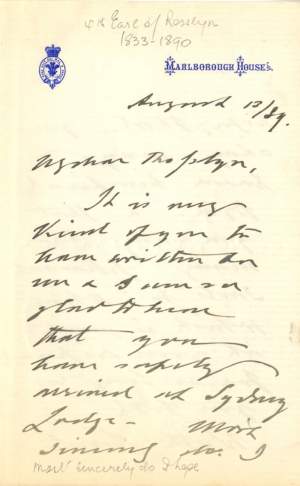 4th Earl of Rosslyn
1833-1890
MARLBOROUGH HOUSE.
August 13/89.
My dear Rosslyn,
It is very
kind of you to
have written to
me & I am so
glad to hear
that you
have safely
arrived at Sydney
Lodge - Most
sincerely do I
most sincerely do I hope